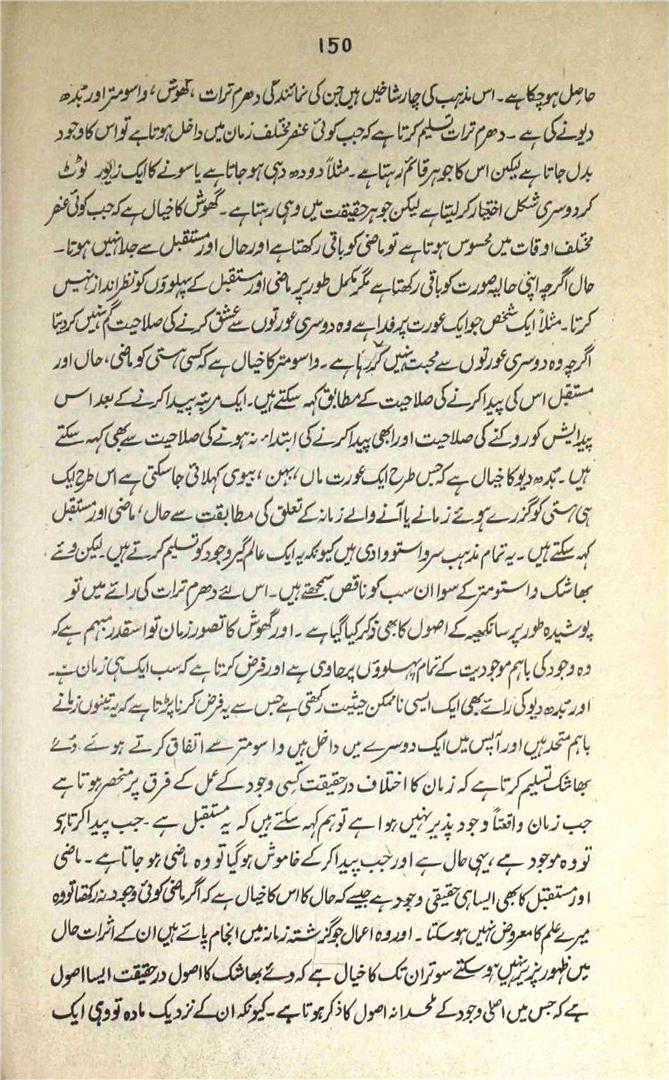 150
حاصل ہوچکا ہے۔ اس مذہب کی چار شاخیں ہیں جن کی نمائندگی دھرم ترات ، گھوش، واسومتر اور بدھ
دیو نے کی ہے ۔ دھرم ترات تسلیم کرتا ہے کہ جب کوئی عنصر مختلف زمان میں داخل ہوتا ہے تو اس کا وجود
بدل جاتا ہے لیکن اس کا جوہر قائم رہتا ہے۔ مثلاً دودھ دہی ہو جاتا ہے یا سونے کا ایک زیور ٹوٹ
کر دوسری شکل اختیار کر لیتا ہے لیکن جوہر حقیقت میں وہی رہتا ہے۔ گھوش کا خیال ہے کہ جب کوئی عنصر
مختلف اوقات میں محسوس ہوتا ہے تو ماضی کو باقی رکھتا ہے اور حال اور مستقبل سے جدا نہیں ہوتا۔
حال اگرچہ اپنی حالیہ صورت کو باقی رکھتا ہے مگر مکمل طور پر ماضی اور مستقبل کے پہلوؤں کو نظر انداز نہیں
کرتا۔ مثلاً ایک شخص جو ایک عورت پر فدا ہے وہ دوسری عورتوں سے عشق کرنے کی صلاحیت گم نہیں کر دیتا
اگرچہ وہ دوسری عورتوں سے محبت نہیں کر رہا ہے۔ واسومتر کا خیال ہے کہ کسی ہستی کو ماضی، حال اور
مستقبل اس کی پیدا کرنے کی صلاحیت کے مطابق کہہ سکتے ہیں۔ ایک مرتبہ پیدا کرنے کے بعد اس
پیدایش کو روکنے کی صلاحیت اور ابھی پیدا کرنے کی ابتداء نہ ہونے کی صلاحیت سے بھی کہہ سکتے
ہیں۔ بدھ دیو کا خیال ہے کہ جس طرح ایک عورت ماں ، بہن ، بیوی کہلائی جاسکتی ہے اس طرح ایک
ہی ہستی کو گزرے ہوئے زمانے یا آنے والے زمانہ کے تعلق کی مطابقت سے حال، ماضی اور مستقبل
کہہ سکتے ہیں ۔ یہ تمام مذہب سرواستو وادی ہیں کیونکہ یہ ایک عالم گیر وجود کو تسلیم کرتے ہیں۔ لیکن وئے
بھاشک واستومتر کے سوا ان سب کو ناقص سمجھتے ہیں۔ اس لئے دھرم ترات کی رائے میں تو
پوشیدہ طور پر سانکھیہ کے اصول کا بھی ذکر کیا گیا ہے ۔ اور گھوش کا تصور زمان تو اسقدر مبہم ہے کہ
وہ وجود کی باہم موجودیت کے تمام پہلوؤں پر حاوی ہے اور فرض کرتا ہے کہ سب ایک ہی زمان ہے۔
اور بدھ دیو کی رائے بھی ایک ایسی ناممکن حیثیت رکھتی ہے جس سے یہ فرض کرنا پڑتا ہے کہ یہ تینوں زمانے
باہم متحد ہیں اور آپس میں ایک دوسرے میں داخل ہیں واسومتر سے اتفاق کرتے ہوئے وئے
بھاشک تسلیم کرتا ہے کہ زمان کا اختلاف در حقیقت کسی وجود کے عمل کے فرق پر منحصر ہوتا ہے
جب زمان واقعتاً وجود پذیر نہیں ہوا ہے تو ہم کہہ سکتے ہیں کہ یہ مستقبل ہے ۔ جب پیدا کرتا ہی
تو وہ موجود ہے ، یہی حال ہے اور جب پیدا کر کے خاموش ہو گیا تو وہ ماضی ہو جاتا ہے ۔ ماضی
اور مستقبل کا بھی ایسا ہی حقیقی وجود ہے جیسے کہ حال کا اس کا خیال ہے کہ اگر ماضی کوئی وجود نہ رکھتا تو وہ
میرے علم کا معروض نہیں ہو سکتا ۔ اور وہ اعمال جو گزشتہ زمانہ میں انجام پائے ہیں ان کے اثرات حال
میں ظہور پزیر نہیں ہو سکتے سو تران تک کا خیال ہے کہ وئے بھاشک کا اصول در حقیقت ایسا اصول
ہے کہ جس میں اصلی وجود کے ملحدانہ اصول کا ذکر ہوتا ہے۔ کیونکہ ان کے نزدیک مادہ تو وہی ایک